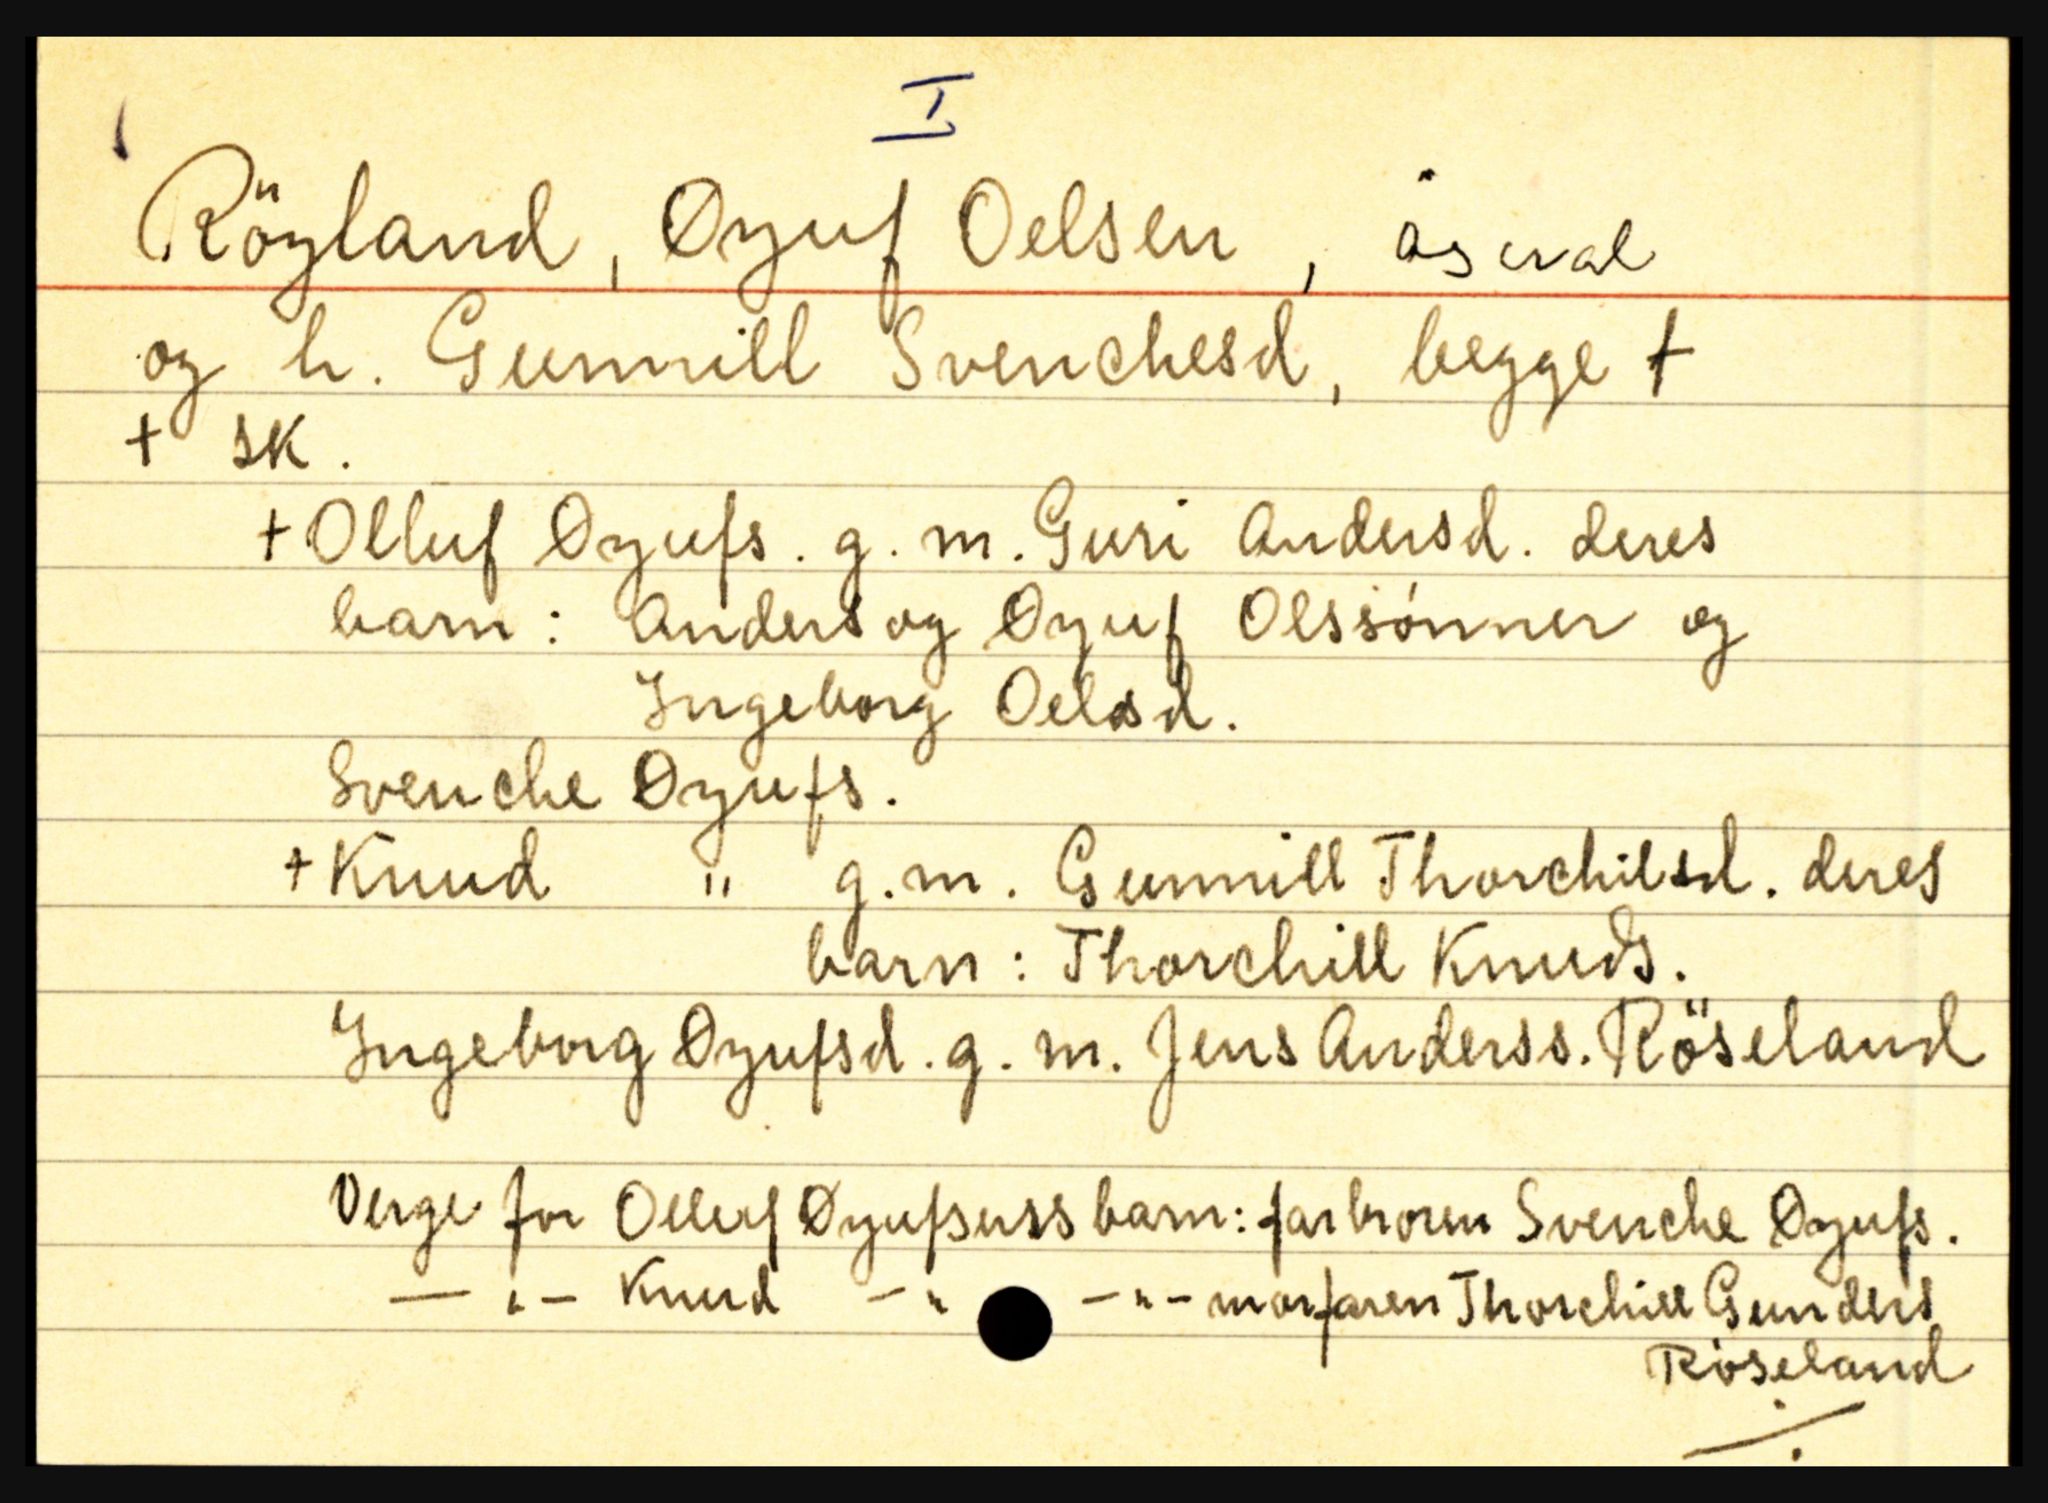 I
Röyland, Øyuf Oelsen, Åseral
og h. Gunnill Svenchesd, begge †
† sk.
† Olluf Øyufs. g. m. Guri Andersd. deres
barn: Anders og Øyuf Olssönner og
Ingeborg Oelsd.
Svenche Øyufs.
† Knud " g. m. Gunnill Thorchilsd. deres
barn: Thorchill Knuds.
Ingeborg Øyufsd. g. m. Jens Anderss. Röseland
Verge for Olluf Øyufsens barn: farbroren Svenche Øyufs.
— " — Knud — " — " — morfaren Thorchill Gunders
Röseland